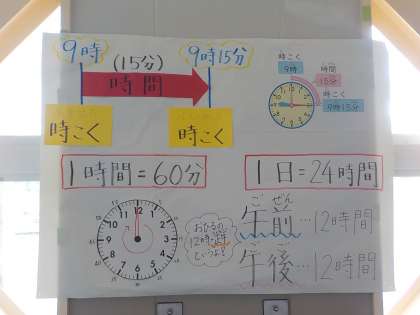 9時
(15分)
9時15分
時間
時こく
時こく
時こく
9時
時間
15分
時こく
9時15分
1時間=60分
1日=24時間
おひるの
12時…正午
というよ!
ごぜん
午前…12時間
ごご
午後…12時間